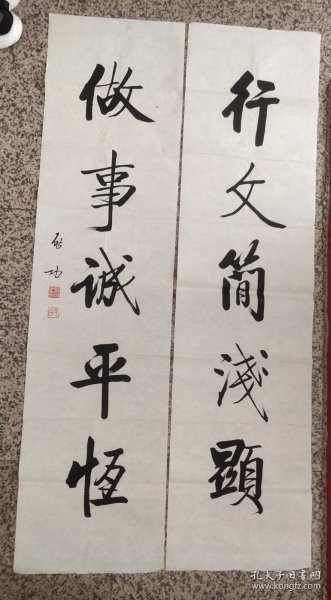 行文简浅顯
做事诚平恒
啟功
孔夫子旧书网
www.kongfz.com